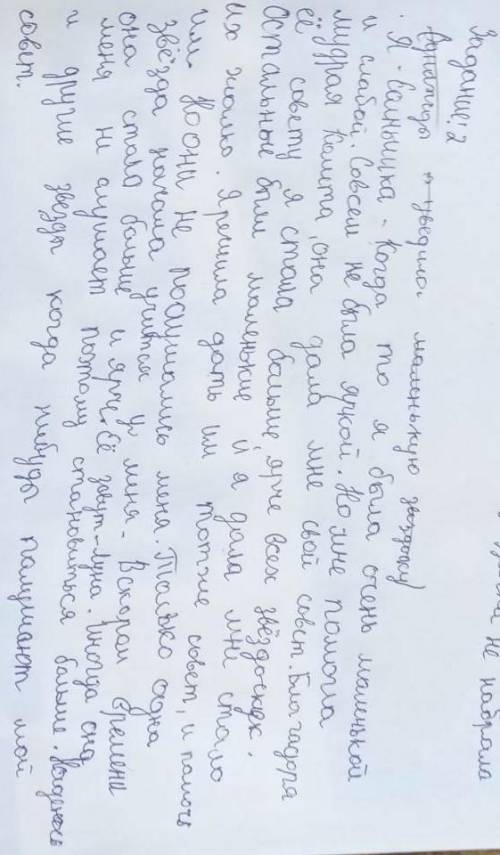 не набрала
Задание: 2
Однажды я увидела маленькую звёздочку
. Я - Солнышка - Когда то я была очень маленькой
и слабой. Совсем не была яркой. Но мне помогла
мудрая Комета, она дала мне свой совет. Благадоря
её совету я стала больше, ярче всех звёздочек.
Остальные были маленькие и я дала мне стало
их жалко. Я решила дать им тотже совет, и помочь
им. Но они не послушались меня. Только одна
звёзда начала учиться у меня - Вскором времени
она стала больше и ярче. Её зовут - Луна. Иногда она
меня не слушает поэтому становиться больше. Надеюсь
и другие звезды когда нибудь паслушают мой
совет.